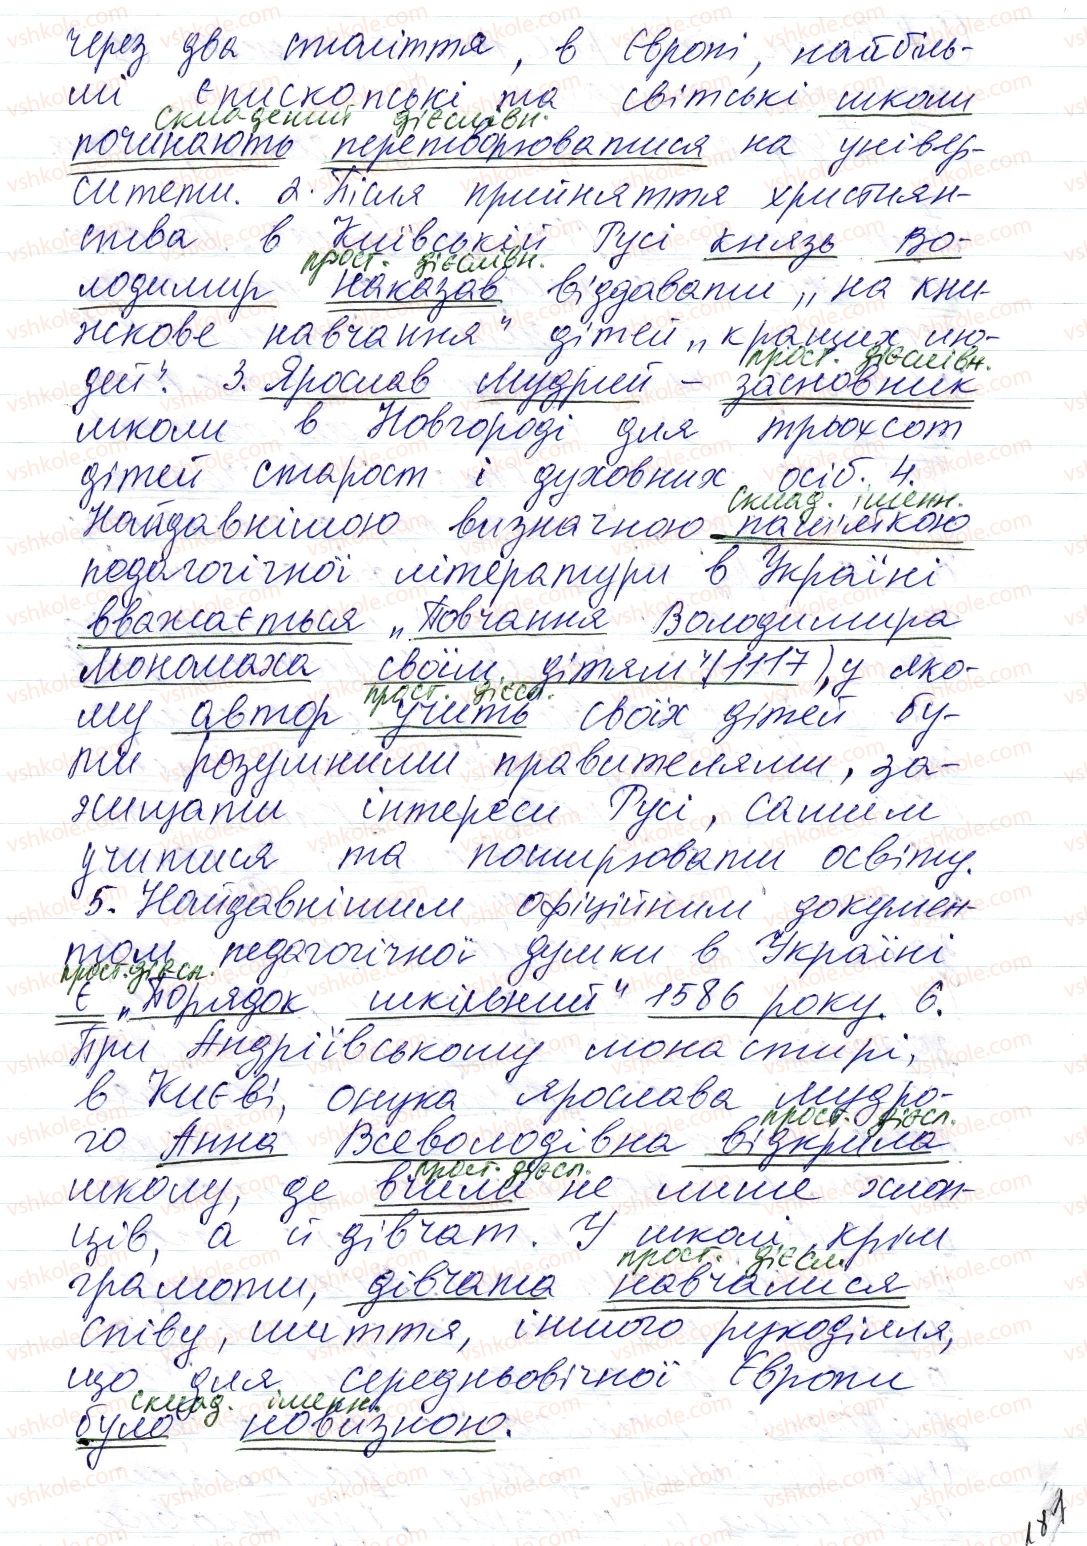 через два століття, в Європі, найбіль-
ші єпископські та світські школи
складений дієслівн.
починають перетворюватися на універ-
ситети. 2. Після прийняття християн-
ства в Київській Русі князь Во-
прост. дієслівн.
лодимир наказав віддавати „на кни-
жкове навчання" дітей „кращих лю-
прост. дієслівн.
дей". 3. Ярослав Мудрий – засновник
школи в Новгороді для трьохсот
дітей старост і духовних осіб. 4.
склад. іменн.
Найдавнішою визначною пам'яткою
педагогічної літератури в Україні
вважається „Повчання Володимира
Мономаха своїм дітям" (1117), у яко-
прост. дієсл.
му автор учить своїх дітей бу-
ти розумними правителями, за-
хищати інтереси Русі, самим
учитися та поширювати освіту.
5. Найдавнішим офіційним докумен-
том педагогічної думки в Україні
прост. дієсл.
є „Порядок шкільний" 1586 року. 6.
При Андріївському монастирі,
в Києві, онука Ярослава Мудро-
прост. дієсл.
го Анна Всеволодівна відкрила
прост. дієсл.
школу, де вчили не лише хлоп-
ців, а й дівчат. У школі, крім
прост. дієсл.
грамоти, дівчата навчалися
співу, шиття, іншого рукоділля,
що для середньовічної Європи
склад. іменн.
було новизною.
187